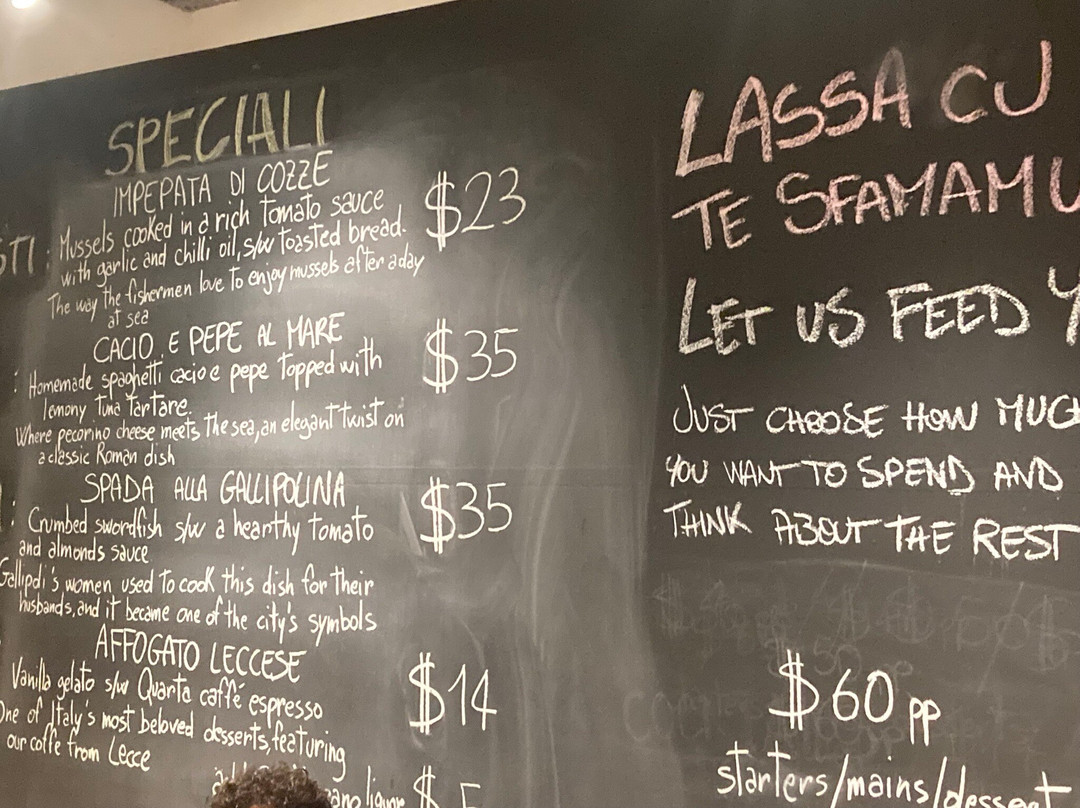 SPECIALI
IMPEPATA DI COZZE
STI : Mussels cooked in a rich tomato sauce $23
with garlic and chilli oil, s/w toasted bread.
The way the fishermen love to enjoy mussels after a day
at sea
CACIO E PEPE AL MARE
: Homemade spaghetti cacio e pepe topped with $35
lemony tuna tartare.
Where pecorino cheese meets the sea, an elegant twist on
a classic Roman dish
SPADA ALLA GALLIPOLINA
: Crumbed swordfish s/w a hearthy tomato $35
and almonds sauce
Gallipoli's women used to cook this dish for their
husbands, and it became one of the city's symbols
AFFOGATO LECCESE
Vanilla gelato s/w Quarta caffé espresso $14
One of Italy's most beloved desserts, featuring
our coffe from Lecce
liquor $5
LASSA CU
TE SFAMAMU
LET US FEED Y
JUST CHOOSE HOW MUCH
YOU WANT TO SPEND AND
THINK ABOUT THE REST
$60 pp
starters/mains/dessert